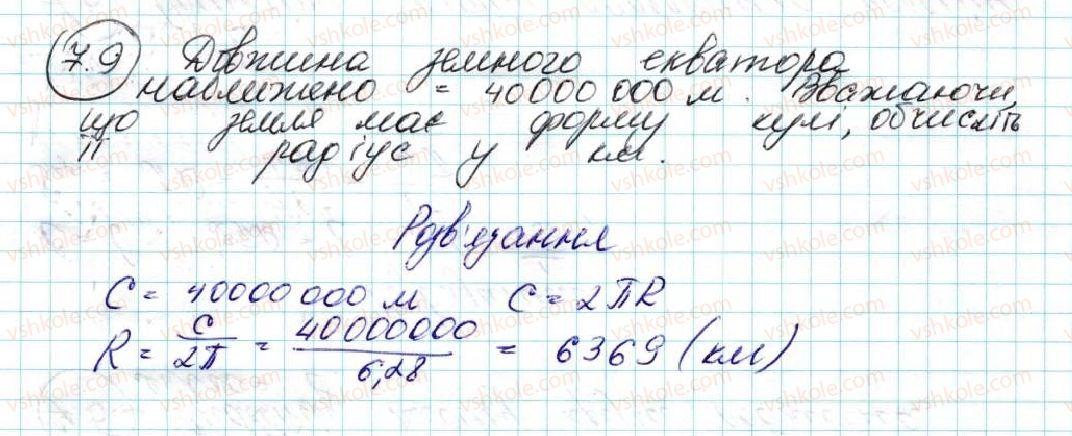 7.9 Довжина земного екватора
наближено = 40000 000 м. Вважаючи,
що земля має форму кулі, обчисліть
її радіус у км.
Розв'язання
C = 40000 000 м C = 2ПR
R = C/2П = 40000000/6,28 = 6369 (км)